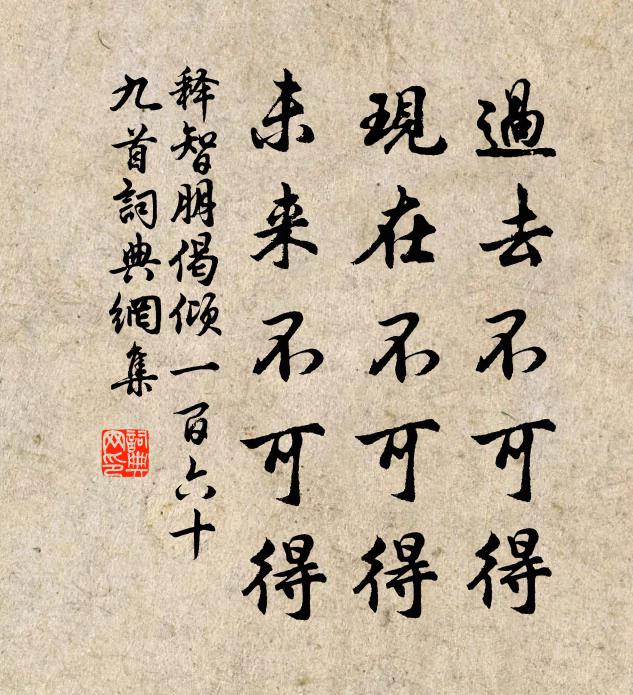 過去不可得
現在不可得
未来不可得
释智朋偈倾一百六十
九首詞典網集
詞典
网印